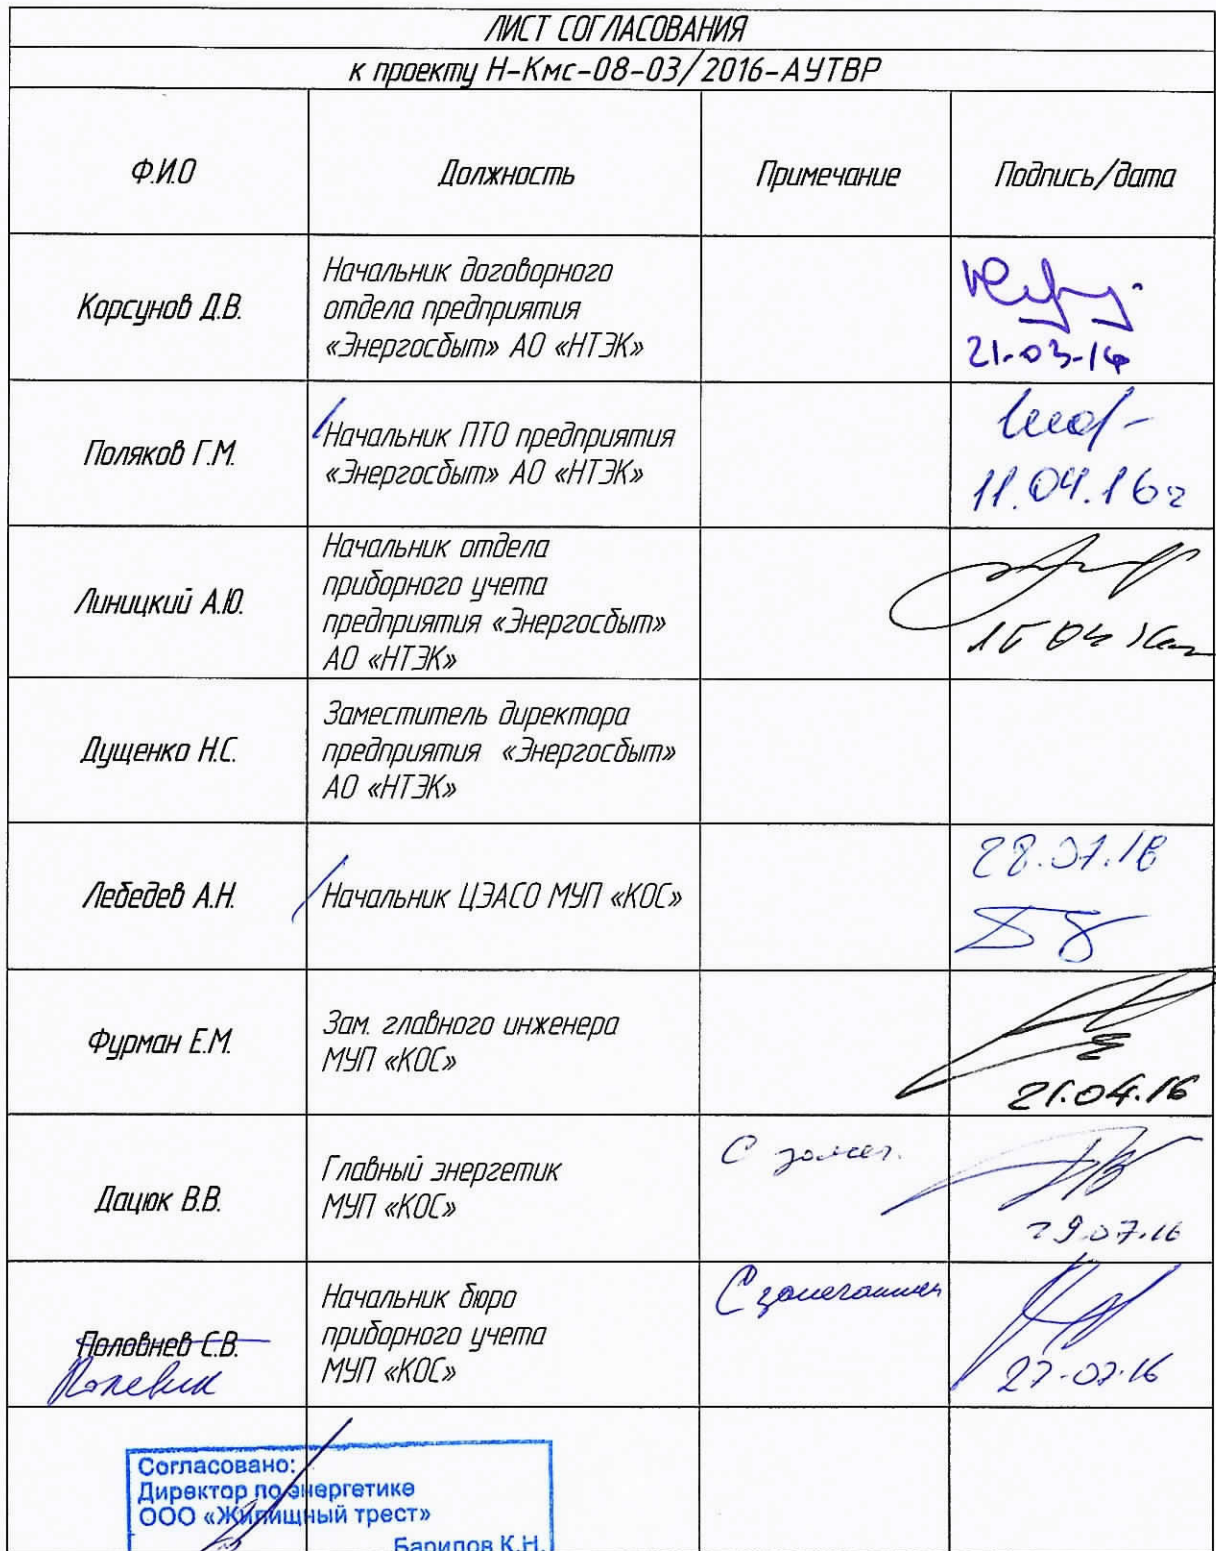 ЛИСТ СОГЛАСОВАНИЯ
к проекту Н-Кмс-08-03/2016-АУТВР
Ф.И.О Должность Примечание Подпись/дата
Корсунов Д.В.
Начальник договорного
отдела предприятия
«Энергосбыт» АО «НТЭК»
21-03-16
Поляков Г.М.
Начальник ПТО предприятия
«Энергосбыт» АО «НТЭК»
11.04.16г
Линицкий А.Ю.
Начальник отдела
приборного учета
предприятия «Энергосбыт»
АО «НТЭК»
Дущенко Н.С.
Заместитель директора
предприятия «Энергосбыт»
АО «НТЭК»
Лебедев А.Н.
Начальник ЦЭАСО МУП «КОС»
28.07.16
Фурман Е.М.
Зам. главного инженера
МУП «КОС»
21.04.16
Дацюк В.В.
Главный энергетик
МУП «КОС»
С замеч.
29.07.16
Половнев С.В.
Начальник бюро
приборного учета
МУП «КОС»
С замечаниями
27-07-16
Согласовано:
Директор по энергетике
ООО «Жилищный трест»
Барилов К.Н.